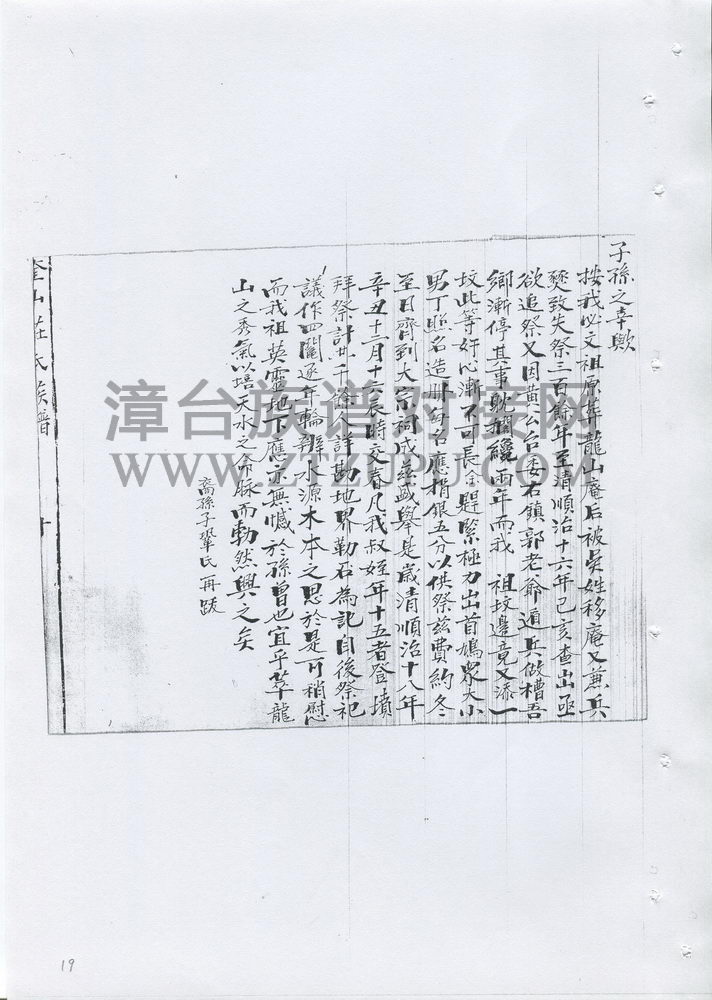 子孫之幸歟
按我必文祖原葬龍山庵后被吳姓移庵又兼兵
燹致失祭三百餘年至清順治十六年己亥查出亟
欲追祭又因黃公台委石鎮郭老爺遁兵做槽吾
鄉漸停其事耽擱纔兩年而我 祖坟邊竟又添一
坟此等奸心漸不可長全趕緊極力出首鳩眾大小
男丁照名造冊每名應捐銀五分以供祭玆費約冬
至日齊到大宗祠成玆盛舉是歲清順治十八年
辛丑十二月十六辰時交春凡我叔姪年十五者登墳
拜祭計廿千餘人詳勘地界勒石為記自後祭祀
議作四鬮逐年輪辦水源木本之思於是可稍慰
而我祖英靈地下應亦無憾於孫曾也宜乎萃龍
山之秀氣以培天水之命脉而勃然興之矣
裔孫子鞏氏再跋
奎山莊氏族譜
十
漳台族谱对接网
WWW.ZTZUPU.COM
19